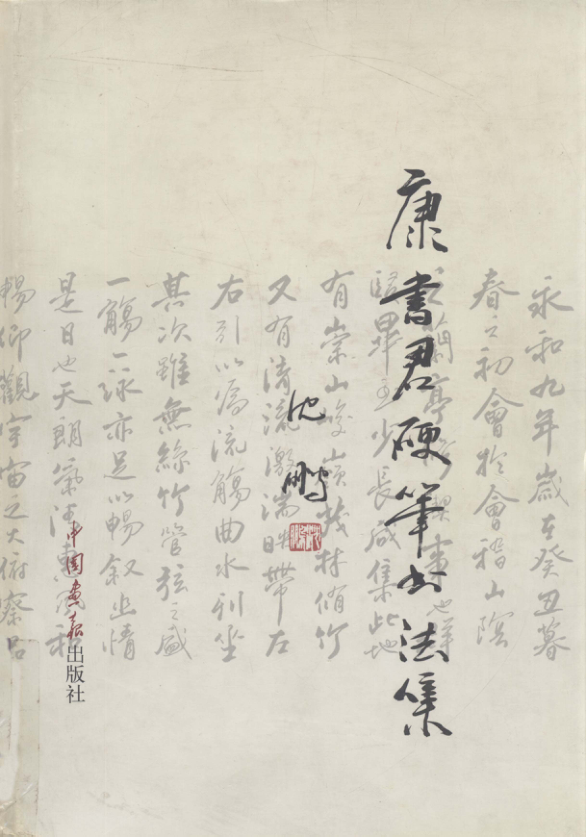 康書君硬筆书法集
沈鹏
中国画报出版社
永和九年歲在癸丑暮
春之初會於會稽山陰
之蘭亭脩禊事也羣
賢畢至少長咸集此地
有崇山峻嶺茂林脩竹
又有清流激湍映帶左
右引以為流觴曲水列坐
其次雖無絲竹管弦之盛
一觴一詠亦足以暢叙幽情
是日也天朗氣清惠風和
暢仰觀宇宙之大俯察品